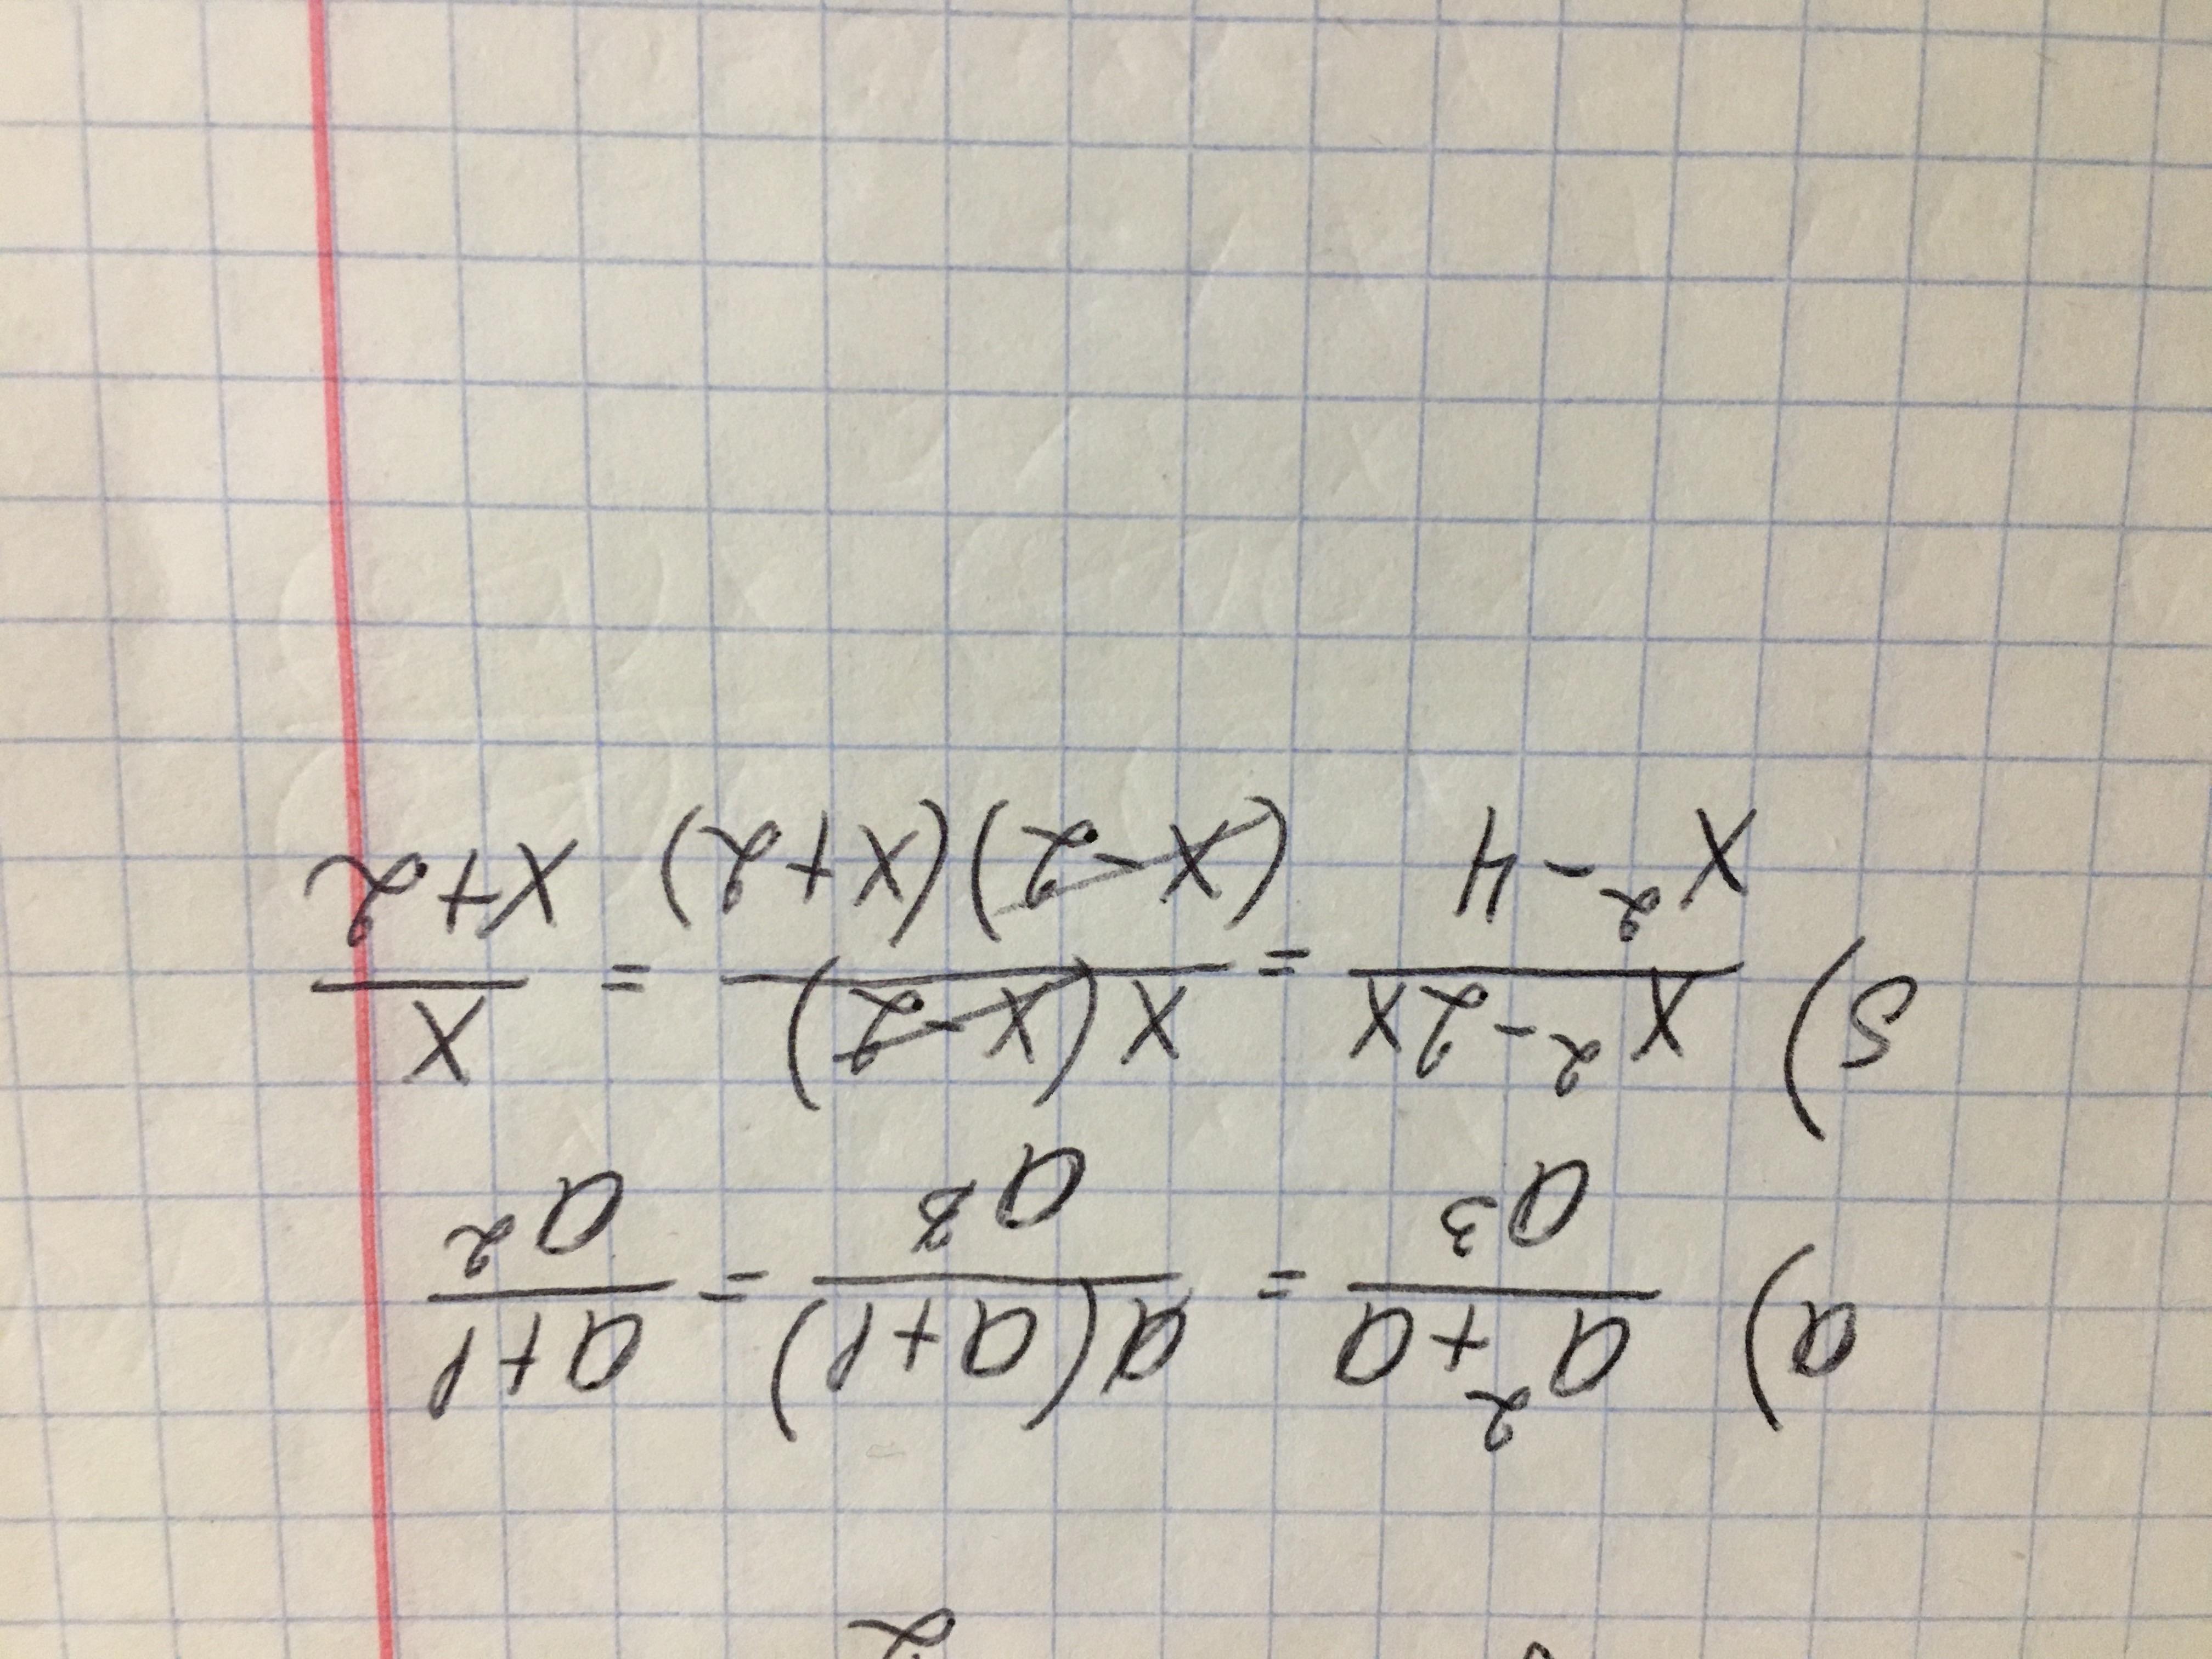 а) (a²+a)/a³ = (a(a+1))/a³ = (a+1)/a²
б) (x²-2x)/(x²-4) = (x(x-2))/((x-2)(x+2)) = x/(x+2)